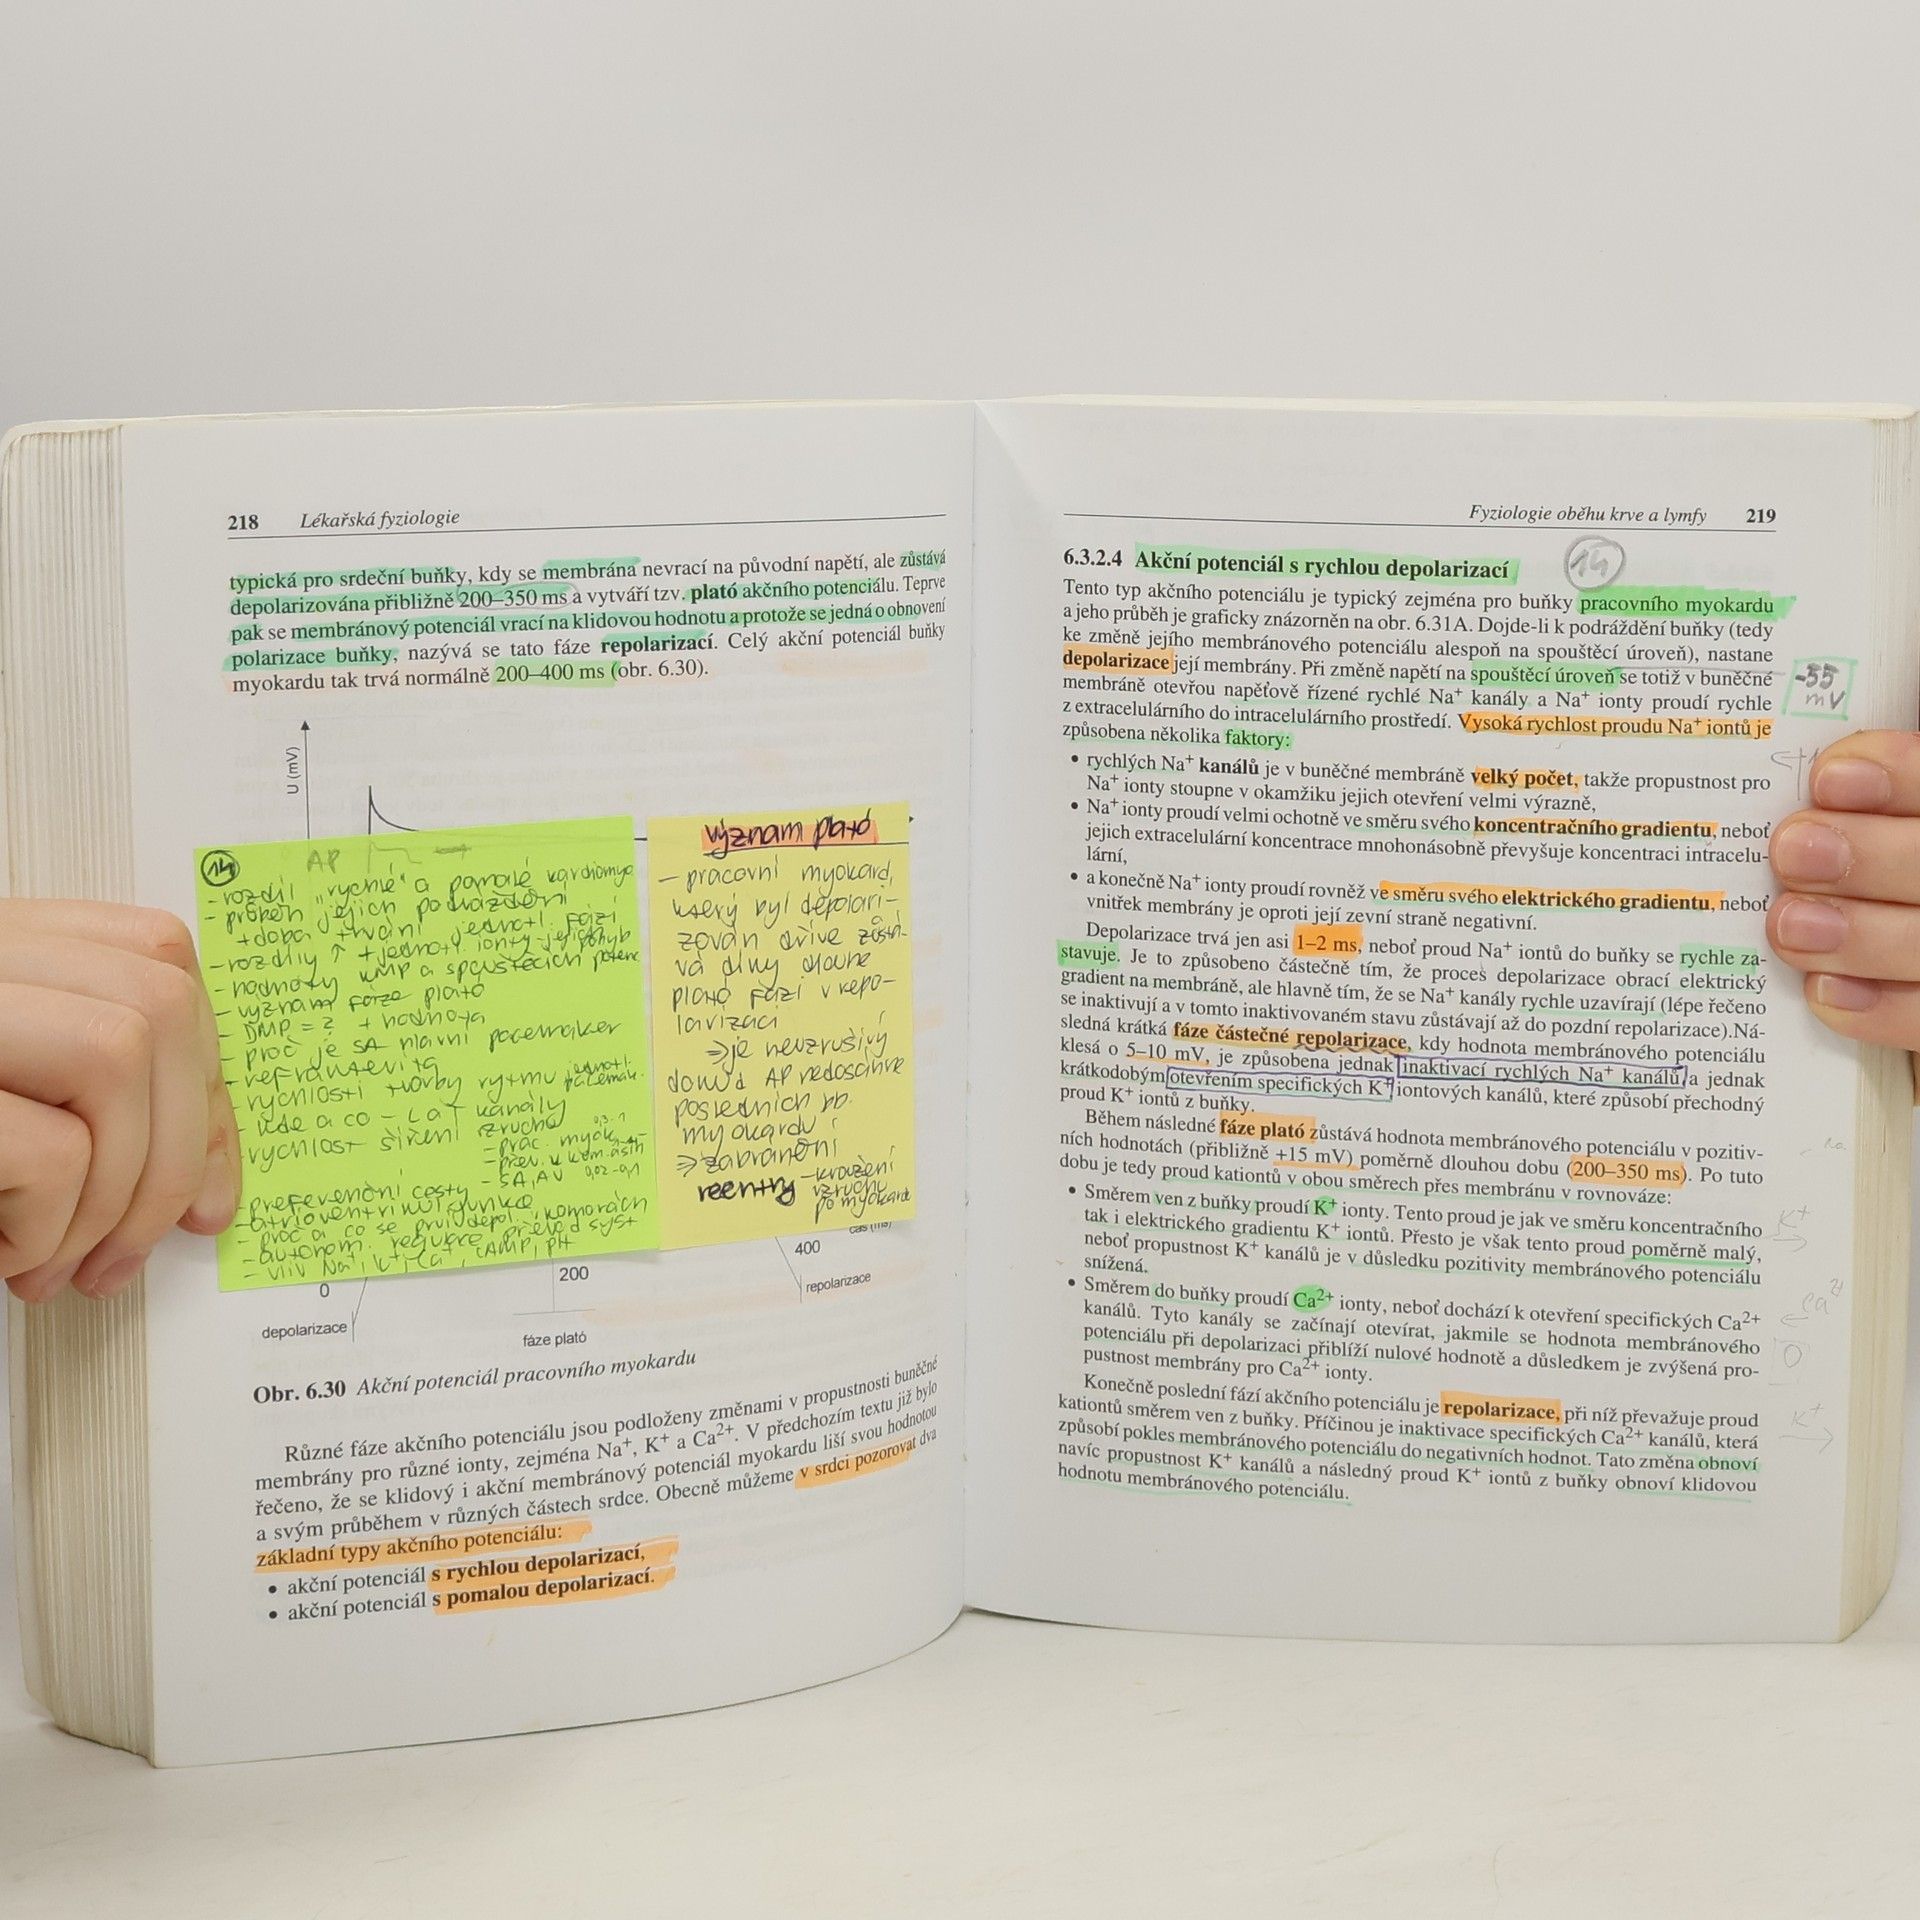 218 Lékařská fyziologie
typická pro srdeční buňky, kdy se membrána nevrací na původní napětí, ale zůstává
depolarizována přibližně 200–350 ms a vytváří tzv. plató akčního potenciálu. Teprve
pak se membránový potenciál vrací na klidovou hodnotu a protože se jedná o obnovení
polarizace buňky, nazývá se tato fáze repolarizací. Celý akční potenciál buňky
myokardu tak trvá normálně 200–400 ms (obr. 6.30).
U (mV)
14
AP
- rozdíl „rychlé" a pomalé kardiomyo
- průběh jejich podráždění
+ doba trvání jednotl. fází
- rozdíly ↑ + jednotl. ionty - jejich pohyb
- hodnoty KMP a spouštěcích potenc
- význam fáze plató
- DMP = ? + hodnota
- proč je SA hlavní pacemaker
- refrakterita
- rychlosti tvorby rytmu jednotl. pacemak.
- kde a co - L a T kanály
- rychlost šíření vzruchu
- prac. myok. 0,3-1
- přev. k kom. části
- SA, AV 0,02-0,1
- preferenční cesty
- atrioventrikul. junkce
- proč a co se prv. depol. v komorách
- autonom. regulace převod syst
- vliv Na+, K+, Ca+, cAMP, pH
význam plató
- pracovní myokard,
který byl depolari-
zován dříve zůstá-
vá díky dlouhé
plató fázi v repo-
larizaci
⇒ je nevzrušivý
dokud AP nedosáhne
posledních bb.
myokardu!
⇒ zabránění
reentry - kroužení
vzruchu
po myokardu
čas (ms)
0
200
400
depolarizace
fáze plató
repolarizace
Obr. 6.30 Akční potenciál pracovního myokardu
Různé fáze akčního potenciálu jsou podloženy změnami v propustnosti buněčné
membrány pro různé ionty, zejména Na+, K+ a Ca2+. V předchozím textu již bylo
řečeno, že se klidový i akční membránový potenciál myokardu liší svou hodnotou
a svým průběhem v různých částech srdce. Obecně můžeme v srdci pozorovat dva
základní typy akčního potenciálu:
• akční potenciál s rychlou depolarizací,
• akční potenciál s pomalou depolarizací.
Fyziologie oběhu krve a lymfy 219
6.3.2.4 Akční potenciál s rychlou depolarizací
14
Tento typ akčního potenciálu je typický zejména pro buňky pracovního myokardu
a jeho průběh je graficky znázorněn na obr. 6.31A. Dojde-li k podráždění buňky (tedy
ke změně jejího membránového potenciálu alespoň na spouštěcí úroveň), nastane
depolarizace její membrány. Při změně napětí na spouštěcí úroveň se totiž v buněčné
-55
mV
membráně otevřou napěťově řízené rychlé Na+ kanály a Na+ ionty proudí rychle
z extracelulárního do intracelulárního prostředí. Vysoká rychlost proudu Na+ iontů je
způsobena několika faktory:
• rychlých Na+ kanálů je v buněčné membráně velký počet, takže propustnost pro
Na+ ionty stoupne v okamžiku jejich otevření velmi výrazně,
• Na+ ionty proudí velmi ochotně ve směru svého koncentračního gradientu, neboť
jejich extracelulární koncentrace mnohonásobně převyšuje koncentraci intracelu-
lární,
• a konečně Na+ ionty proudí rovněž ve směru svého elektrického gradientu, neboť
vnitřek membrány je oproti její zevní straně negativní.
Depolarizace trvá jen asi 1–2 ms, neboť proud Na+ iontů do buňky se rychle za-
stavuje. Je to způsobeno částečně tím, že proces depolarizace obrací elektrický
gradient na membráně, ale hlavně tím, že se Na+ kanály rychle uzavírají (lépe řečeno
se inaktivují a v tomto inaktivovaném stavu zůstávají až do pozdní repolarizace).Ná-
sledná krátká fáze částečné repolarizace, kdy hodnota membránového potenciálu
klesá o 5–10 mV, je způsobena jednak inaktivací rychlých Na+ kanálů, a jednak
krátkodobým otevřením specifických K+ iontových kanálů, které způsobí přechodný
proud K+ iontů z buňky.
Během následné fáze plató zůstává hodnota membránového potenciálu v pozitiv-
ních hodnotách (přibližně +15 mV) poměrně dlouhou dobu (200–350 ms). Po tuto
dobu je tedy proud kationtů v obou směrech přes membránu v rovnováze:
• Směrem ven z buňky proudí K+ ionty. Tento proud je jak ve směru koncentračního
tak i elektrického gradientu K+ iontů. Přesto je však tento proud poměrně malý,
K+
neboť propustnost K+ kanálů je v důsledku pozitivity membránového potenciálu
snížená.
• Směrem do buňky proudí Ca2+ ionty, neboť dochází k otevření specifických Ca2+
Ca2+
kanálů. Tyto kanály se začínají otevírat, jakmile se hodnota membránového
potenciálu při depolarizaci přiblíží nulové hodnotě a důsledkem je zvýšená pro-
0
pustnost membrány pro Ca2+ ionty.
Konečně poslední fází akčního potenciálu je repolarizace, při níž převažuje proud
kationtů směrem ven z buňky. Příčinou je inaktivace specifických Ca2+ kanálů, která
K+
způsobí pokles membránového potenciálu do negativních hodnot. Tato změna obnoví
navíc propustnost K+ kanálů a následný proud K+ iontů z buňky obnoví klidovou
hodnotu membránového potenciálu.